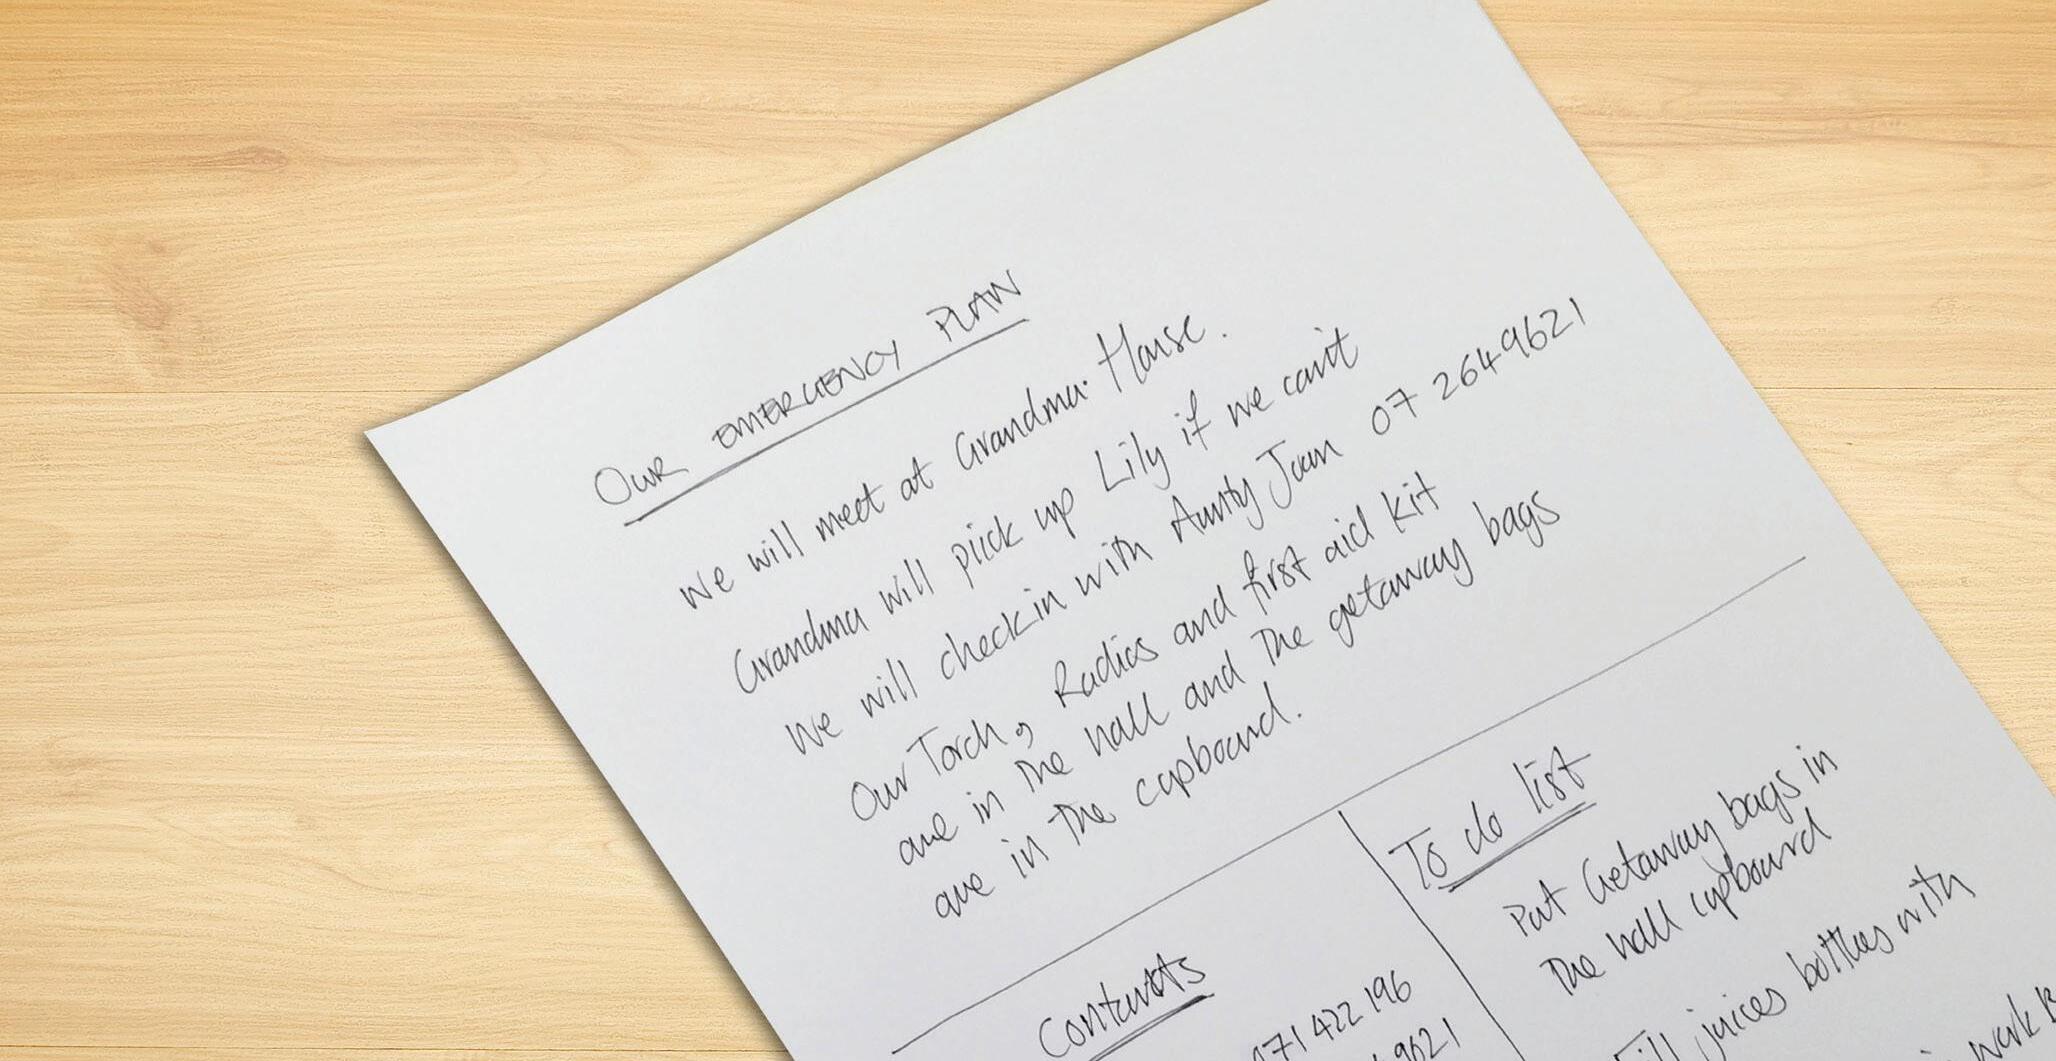 OUR EMERGENCY PLAN
We will meet at Grandma House.
Grandma will pick up Lily if we can't
We will check in with Aunty Joan 07 2649621
Our Torch, Radios and first aid kit
are in the hall and the getaway bags
are in the cupboard.
Contacts
071 422 196
9621
To do list
Put Getaway bags in
the hall cupboard
Fill juices bottles with
work